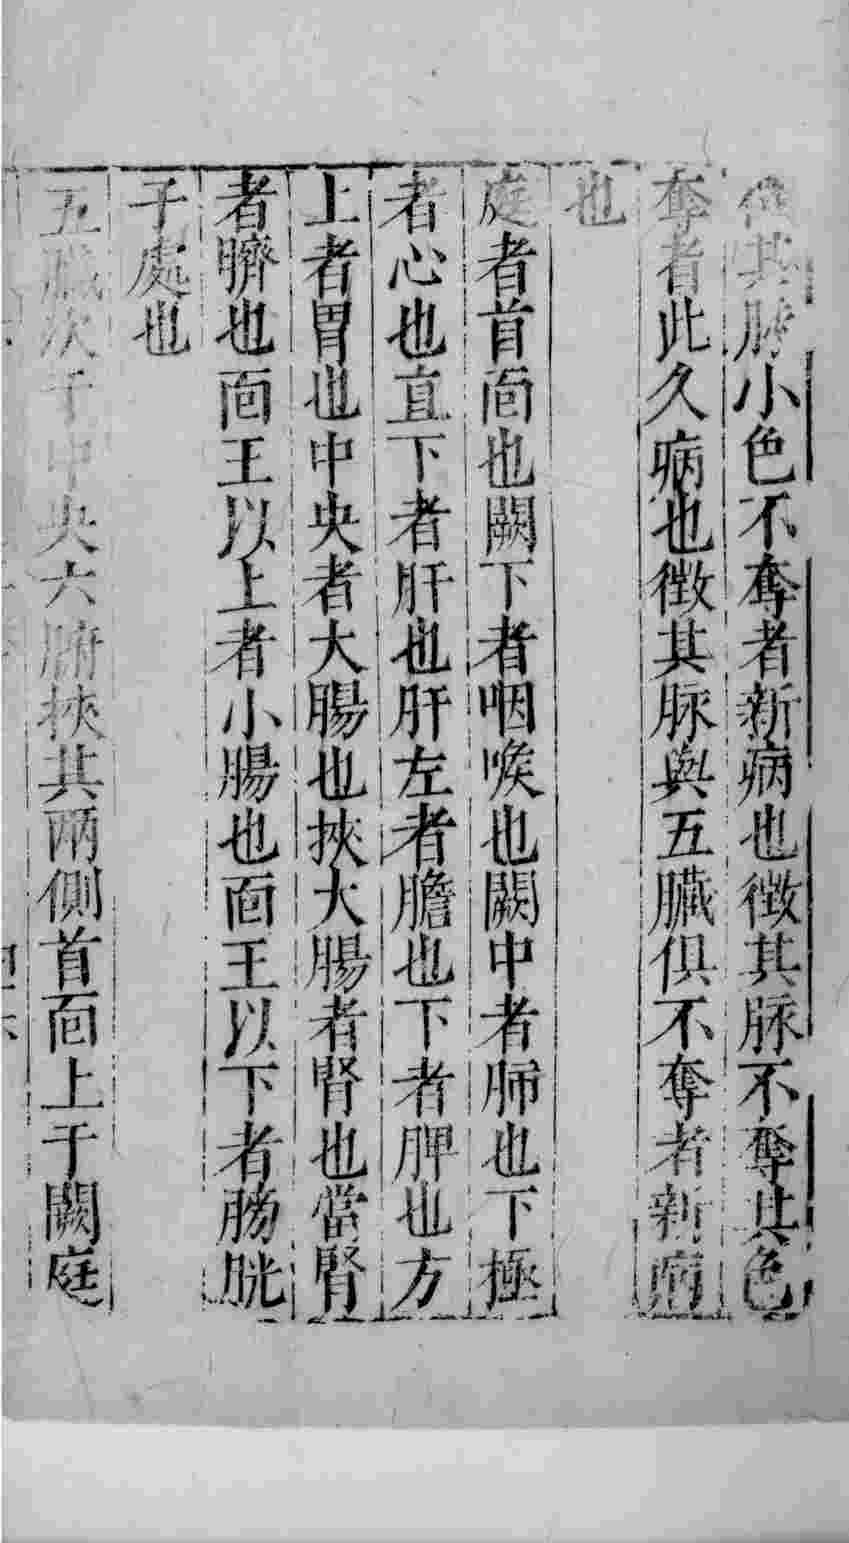 徵其脉小色不奪者新病也徵其脉不奪其色
奪者此久病也徵其脉與五臟俱不奪者新病
也
庭者首面也闕下者咽喉也闕中者肺也下極
者心也直下者肝也肝左者膽也下者脾也方
上者胃也中央者大腸也挾大腸者腎也當腎
者臍也面王以上者小腸也面王以下者膀胱
子處也
五臟次于中央六腑挾其兩側首面上于闕庭